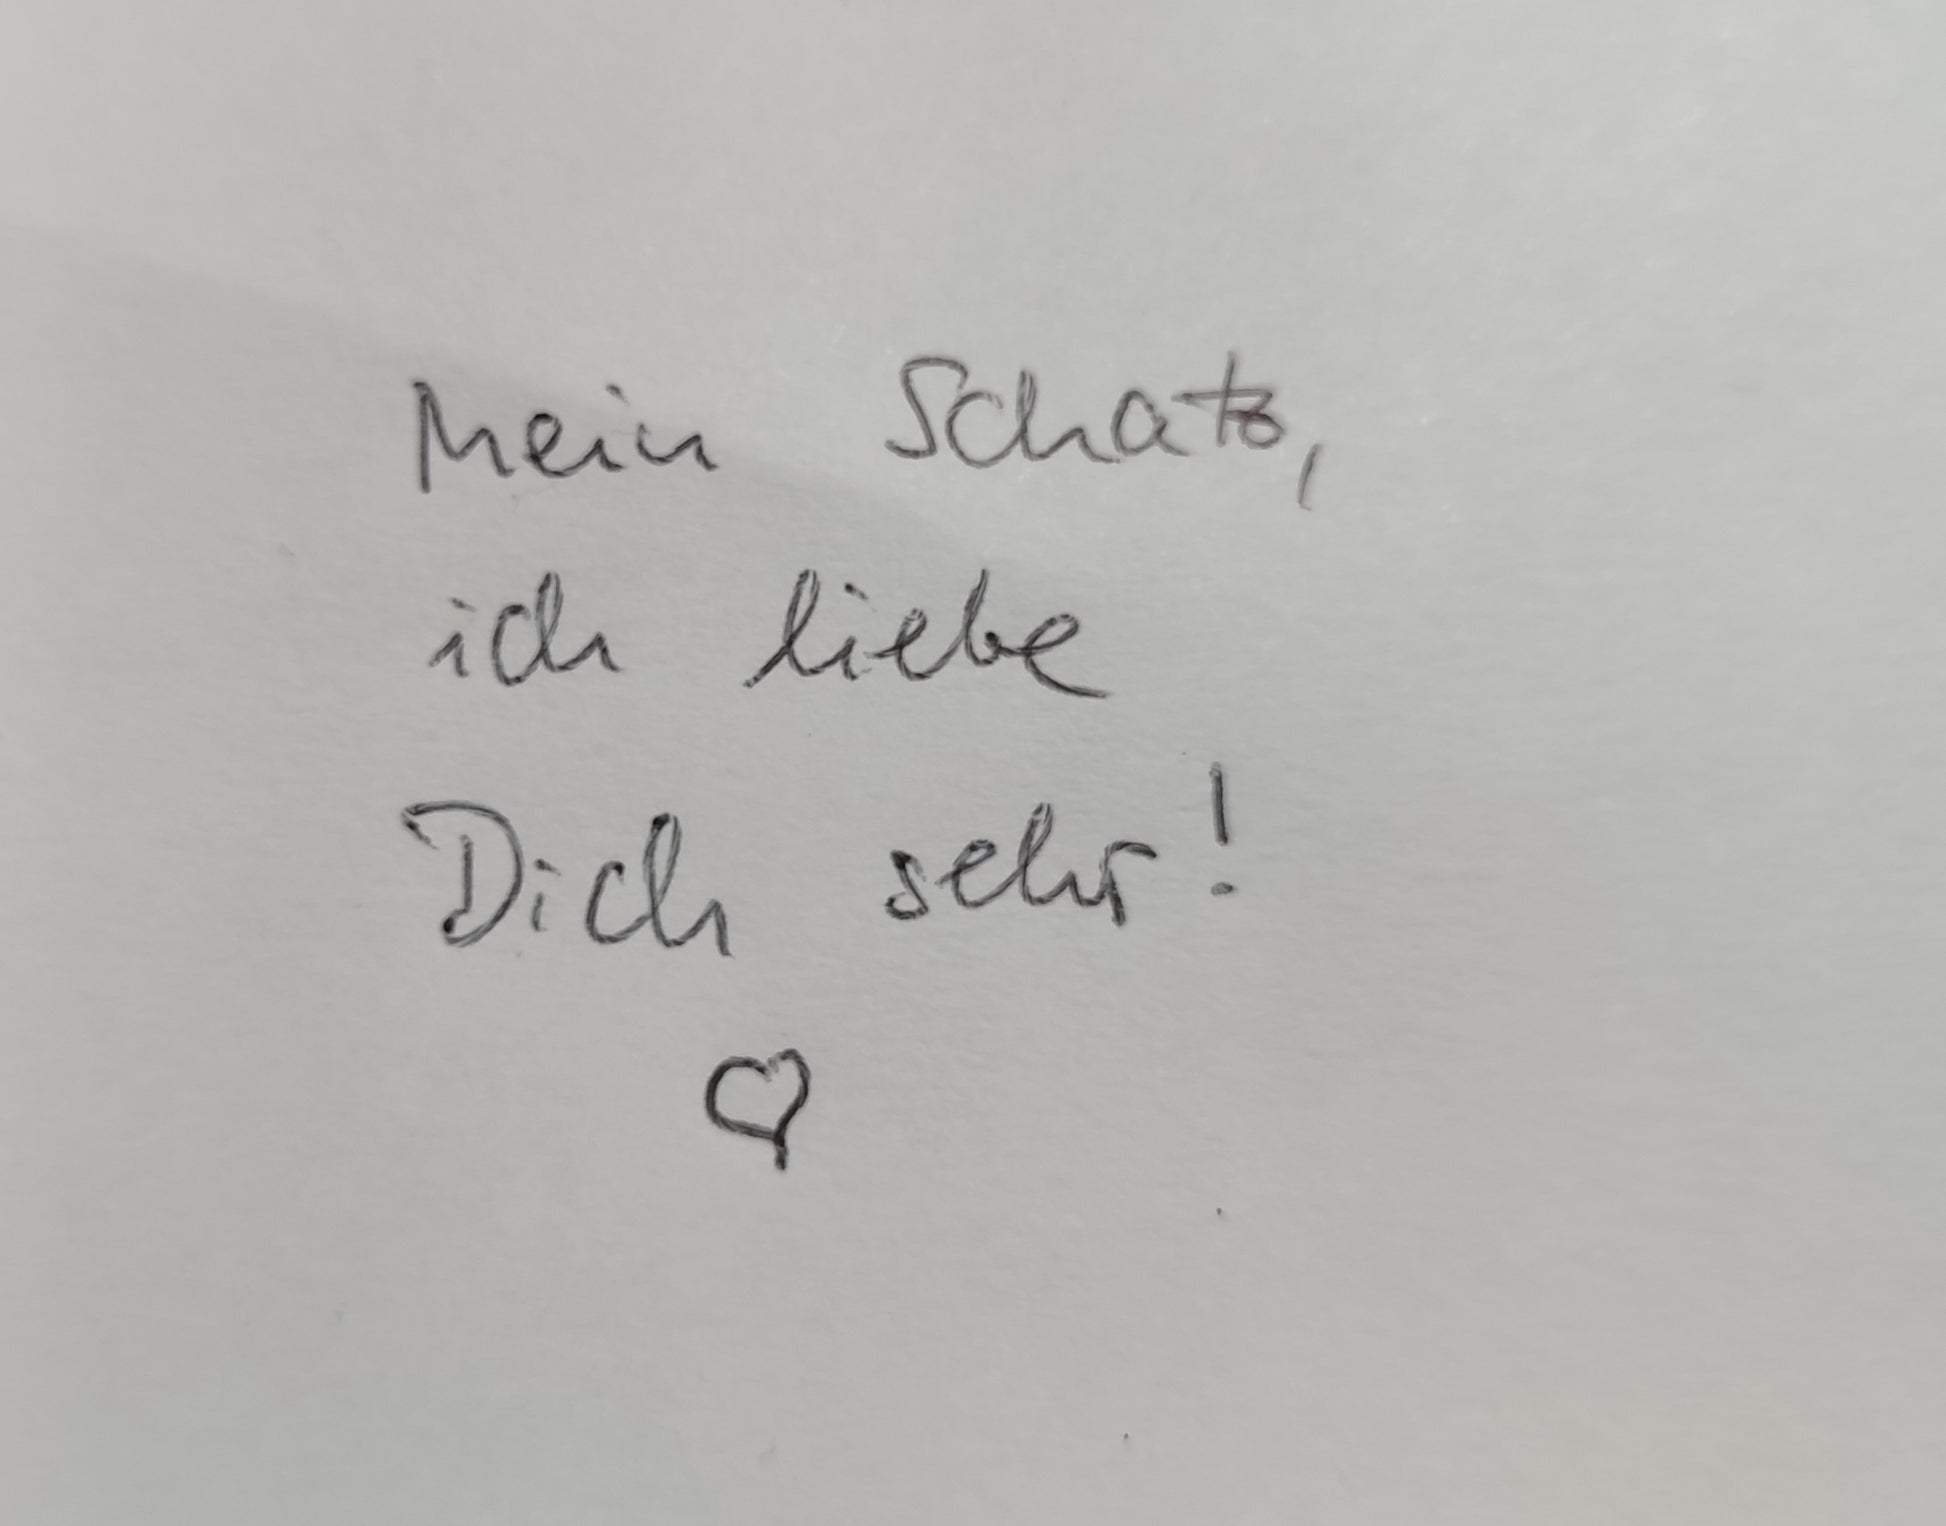 Mein Schatz,
ich liebe
Dich sehr!
♡